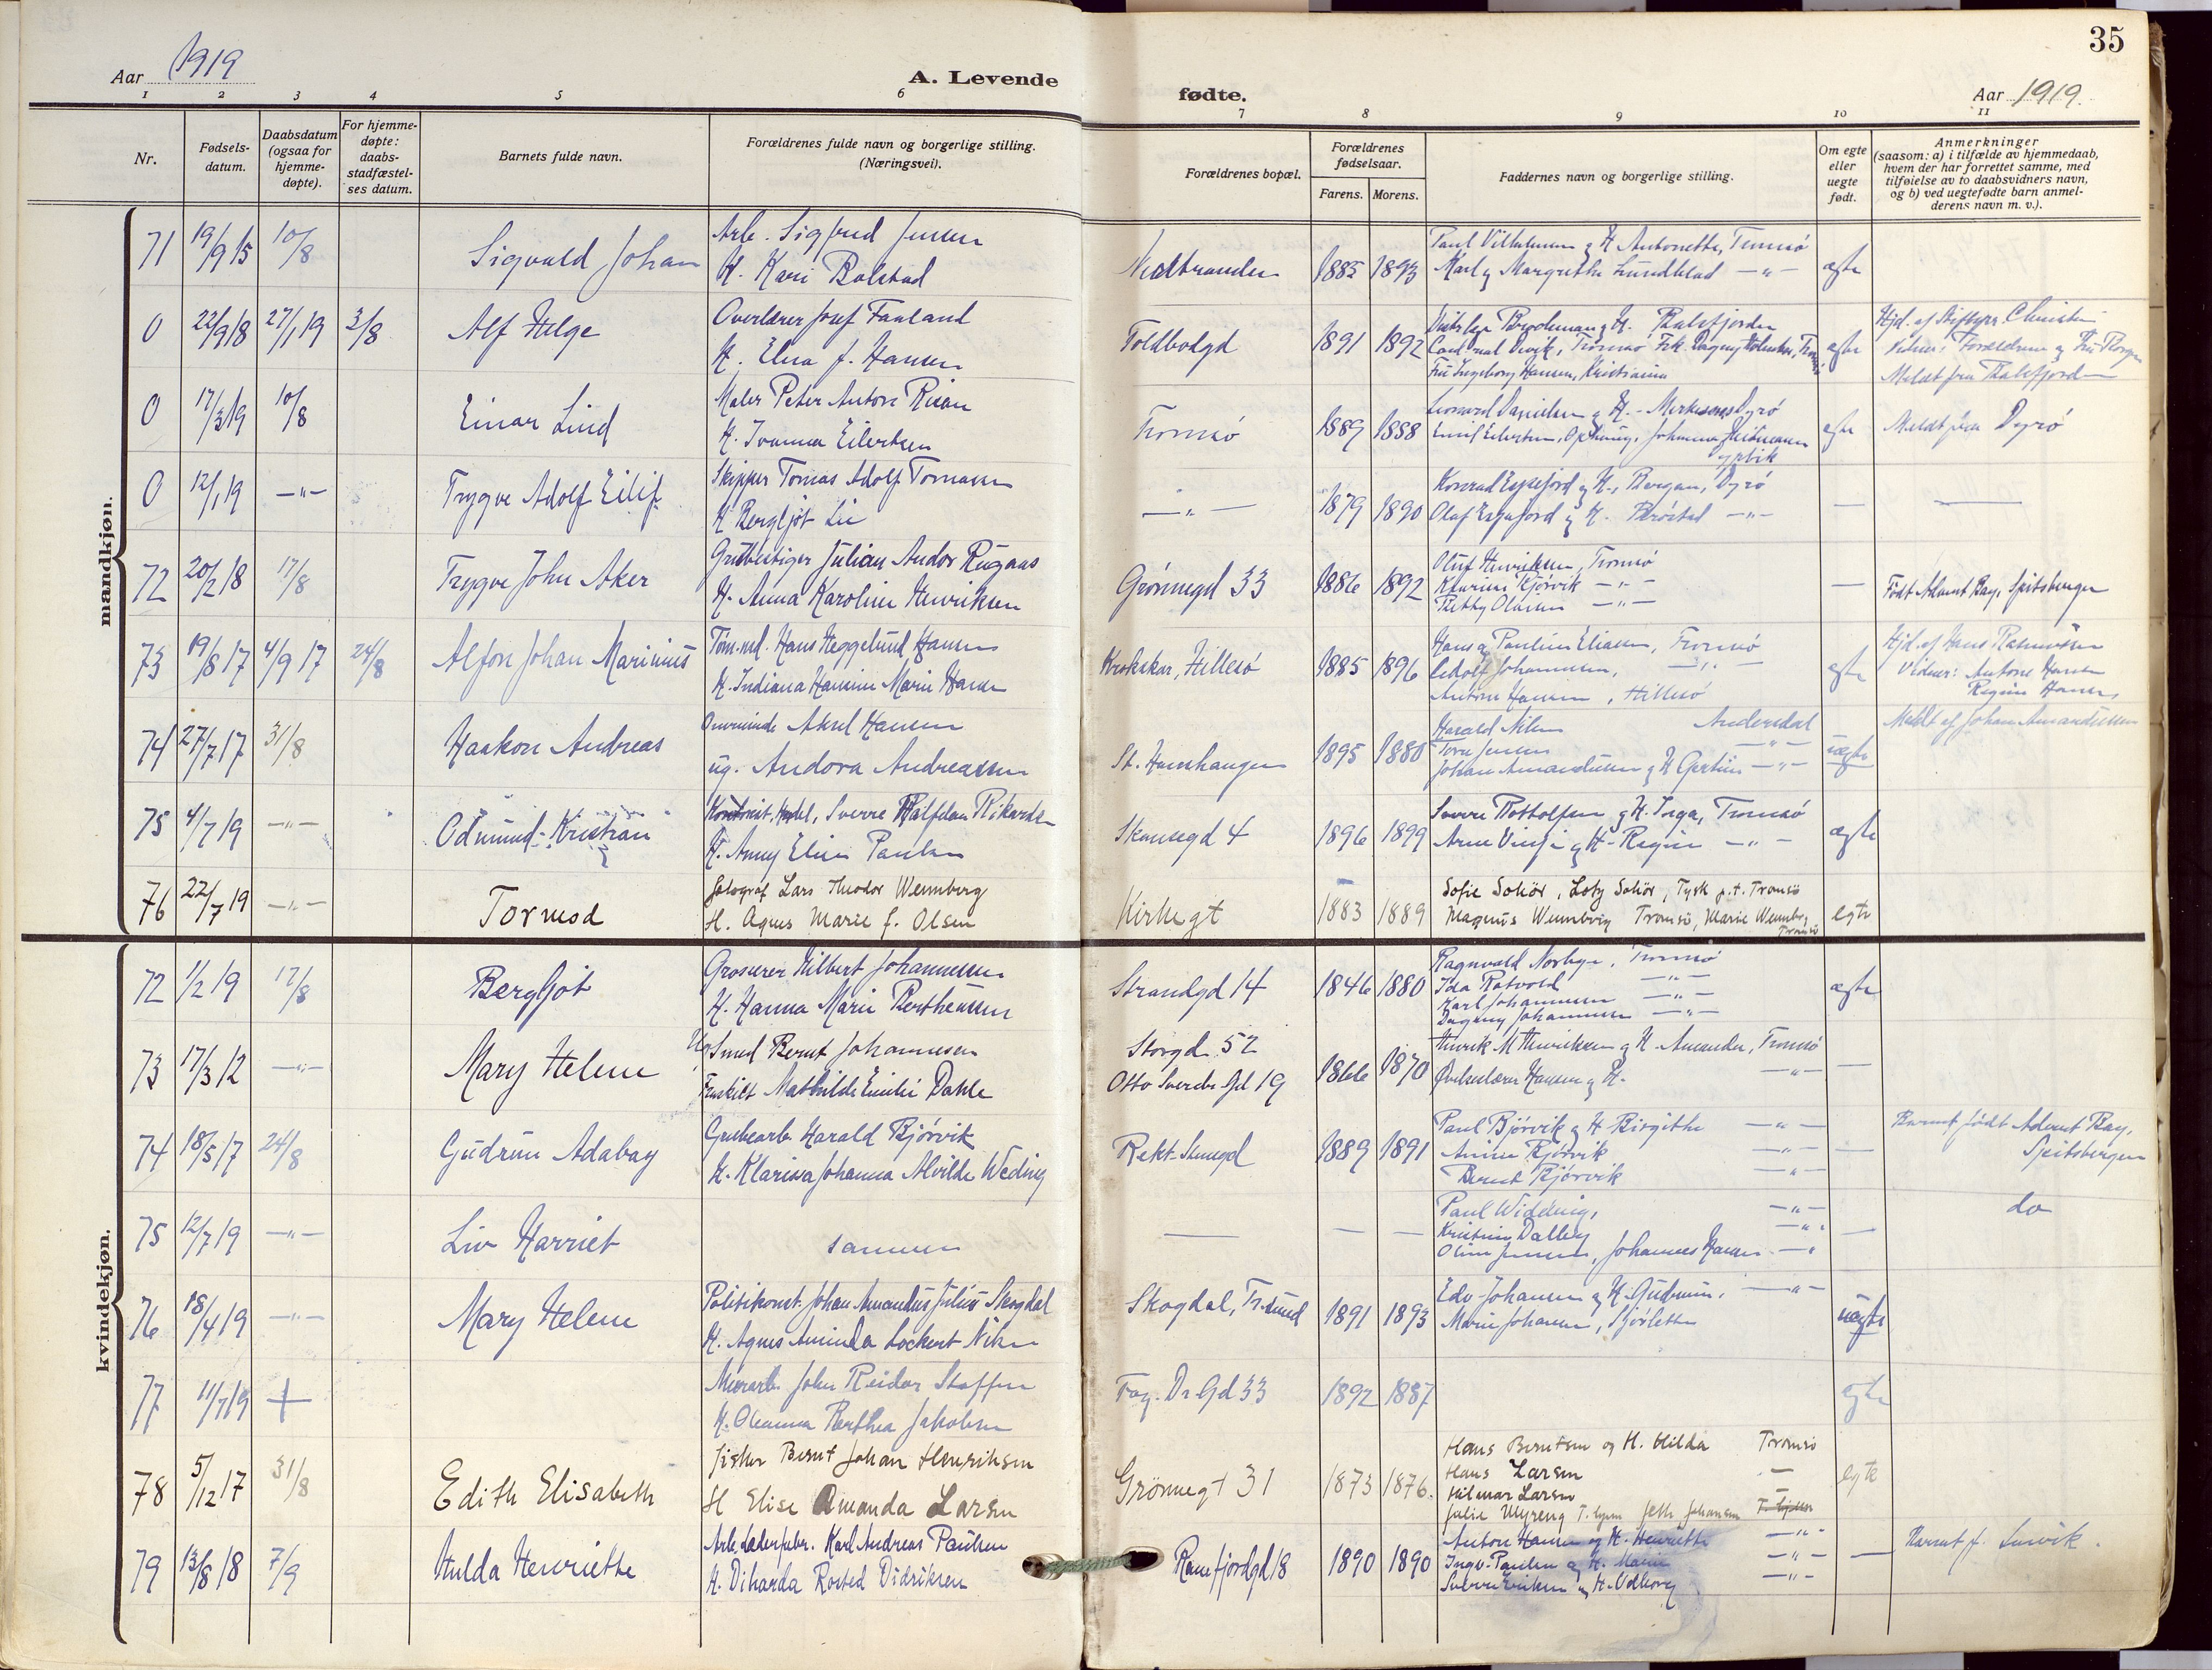 35
Aar 1919
A. Levende
fødte.
Aar 1919.
1 2 3 4 5 6 7 8 9 10 11
Nr.
Fødsels-
datum.
Daabsdatum
(ogsaa for
hjemme-
døpte).
For hjemme-
døpte:
daabs-
stadfæstel-
ses datum.
Barnets fulde navn.
Forældrenes fulde navn og borgerlige stilling.
(Næringsvei).
Forældrenes bopæl.
Forældrenes
fødselsaar.
Farens. Morens.
Faddernes navn og borgerlige stilling.
Om egte
eller
uegte
født.
Anmerkninger
(saasom: a) i tilfælde av hjemmedaab,
hvem der har forrettet samme, med
tilføielse av to daabsvidners navn,
og b) ved uegtefødte barn anmel-
derens navn m. v.).
mandkjøn.
71 19/9 15 10/8 Sigvald Johan
Arb. Sigfred Jensen
H. Kari Bolstad
1885 1893
Karl og Margrethe Lundblad —"—
ægte
0 22/9 18 27/1 19 3/8 Alf Helge
Overlærer Josef Faaland
H. Elna f. Hansen
Toldbodgd 1891 1892
Fru Ingeborg Hansen, Kristiania
ægte
Meldt fra Balsfjorden
0 17/3 19 10/8 Einar Lind
Maler Peter Anton
H. Ivanna Eilertsen
Tromsø 1889 1888
egte
Meldt fra Dyrø
0 12/1 19 —"— Trygve Adolf Eilif
Skipper Tomas Adolf Tomassen
H. Bergljot Lie
—"— 1879 1890
Konrad Espefjord og H., Bergan, Dyrø
Olaf Espefjord og H. —"—
— —
72 20/2 18 17/8 Trygve John Aker
Grubestiger Julian Andor Rugaas
H. Anna Karoline Henriksen
Grønnegd 33 1886 1892
Oluf Henriksen, Tromsø
—"—
Olausen —"—
—
Født Advent Bay, Spitsbergen
73 19/8 17 4/9 17 24/8 Alfon Johan Marinius
Tøm.md. Hans Heggelund Hansen
H. Indiana Hansine Marie Hansen
Krokskar, Hillesø 1885 1896
Hans og Pauline Eliassen, Tromsø
Johannesen, —"—
Antone Hansen, Hillesø
egte
Hjd. af Hans Rasmussen
Vidner: Antone Hansen
Regine Hansen
74 27/7 17 31/8 Haakon Andreas
Aksel Hansen
ug. Andora Andreassen
St. Hanshaugen 1895 1880
Harald Nilsen Andersdal
Tora Jensen —"—
Johan Amandussen og H —"—
uægte
Meldt af Johan Amandussen
75 4/7 19 —"— Odmund Kristian
Sverre Halfdan Rikardsen
H. Anny Elise Paulsen
Skansegd 4 1896 1899
Sverre Rotvolfsen og H. Inga, Tromsø
Arne Vinje og H. Regine —"—
ægte
76 22/7 19 —"— Tormod
fotograf Lars Theodor Wennberg
H. Agnes Marie f. Olsen
Kirkegt 1883 1889
Sofie Sohör, Loty Sohör, Tysk p.t. Tromsö
Magnus Wennberg Tromsö, Marie Wennberg
Tromsö
egte
kvindekjøn.
72 1/2 19 17/8 Bergljot
Grosserer Hilbert Johannesen
H. Hanna Marie Bertheussen
Strandgd 14 1846 1880
Ragnvald Norbye, Tromsø
Ida Rotvold —"—
Karl Johannesen —"—
Dagny Johannesen —"—
ægte
73 17/3 12 —"— Mary Helene
Smed Bernt Johannesen
Fraskilt Mathilde Emilie Dahle
Storgd. 52
Otto Sverdr. Gd 19
1866 1870
Henrik M Henriksen og H. Amanda, Tromsø
Hansen og H. —"—
—
74 18/5 17 24/8 Gudrun Adabay
Grubearb. Harald Bjørvik
H. Klarissa Johanna Alvilde Weding
Rekt. Steengd 1889 1891
Paul Bjørvik og H Birgithe —"—
Anine Bjørvik —"—
Bernt Bjørvik —"—
—
Barnet født Advent Bay,
Spitsbergen
75 12/7 19 —"— Liv Harriet
sammen
— — —
Paul Widding, —"—
Kristine Dalley —"—
Oline Jensen, Johannes Hansen —"—
—
do
76 18/4 19 —"— Mary Helene
Politikonst. Johan Amandus Julius Skogdal
H. Agnes Aminda Lockert Nilsen
Skogdal, Tr.sund 1891 1893
Edv. Johansen og H. Gudrun, —"—
Marie Johansen,
uægte
77 11/7 19 +
Murarb. John Reidar Steffensen
H. Oleanna Berthea Jakobsen
Fog. Dr. Gd 33 1892 1887
egte
78 5/12 17 31/8 Edith Elisabeth
fisker Bernt Johan Henriksen
H Elise Amanda Larsen
Grönnegt 31 1873 1876.
Hans Berntsen og H. Hilda Tromsö
Hans Larsen —
Hilmar Larsen
Julie Myreng
egte
79 13/8 18 7/9 Hulda Henriette
Arb. Læderfabr. Karl Andreas Paulsen
H. Diharda Rosted Didriksen
Ramfjordgd 18 1890 1890
Anton Hansen og H. Henriette —"—
Ingv. Paulsen og H. Marie —"—
Sverre Eriksen og H. Valborg —"—
—